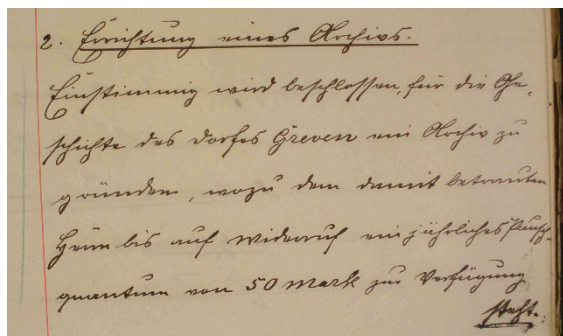 2. Errichtung eines Archivs.
Einstimmig wird beschlossen, für die Ge-
schichte des Dorfes Greven ein Archiv zu
gründen, wozu dem damit betrauten
Herrn bis auf Widerruf ein jährliches Pausch-
quantum von 50 Mark zur Verfügung
steht.: